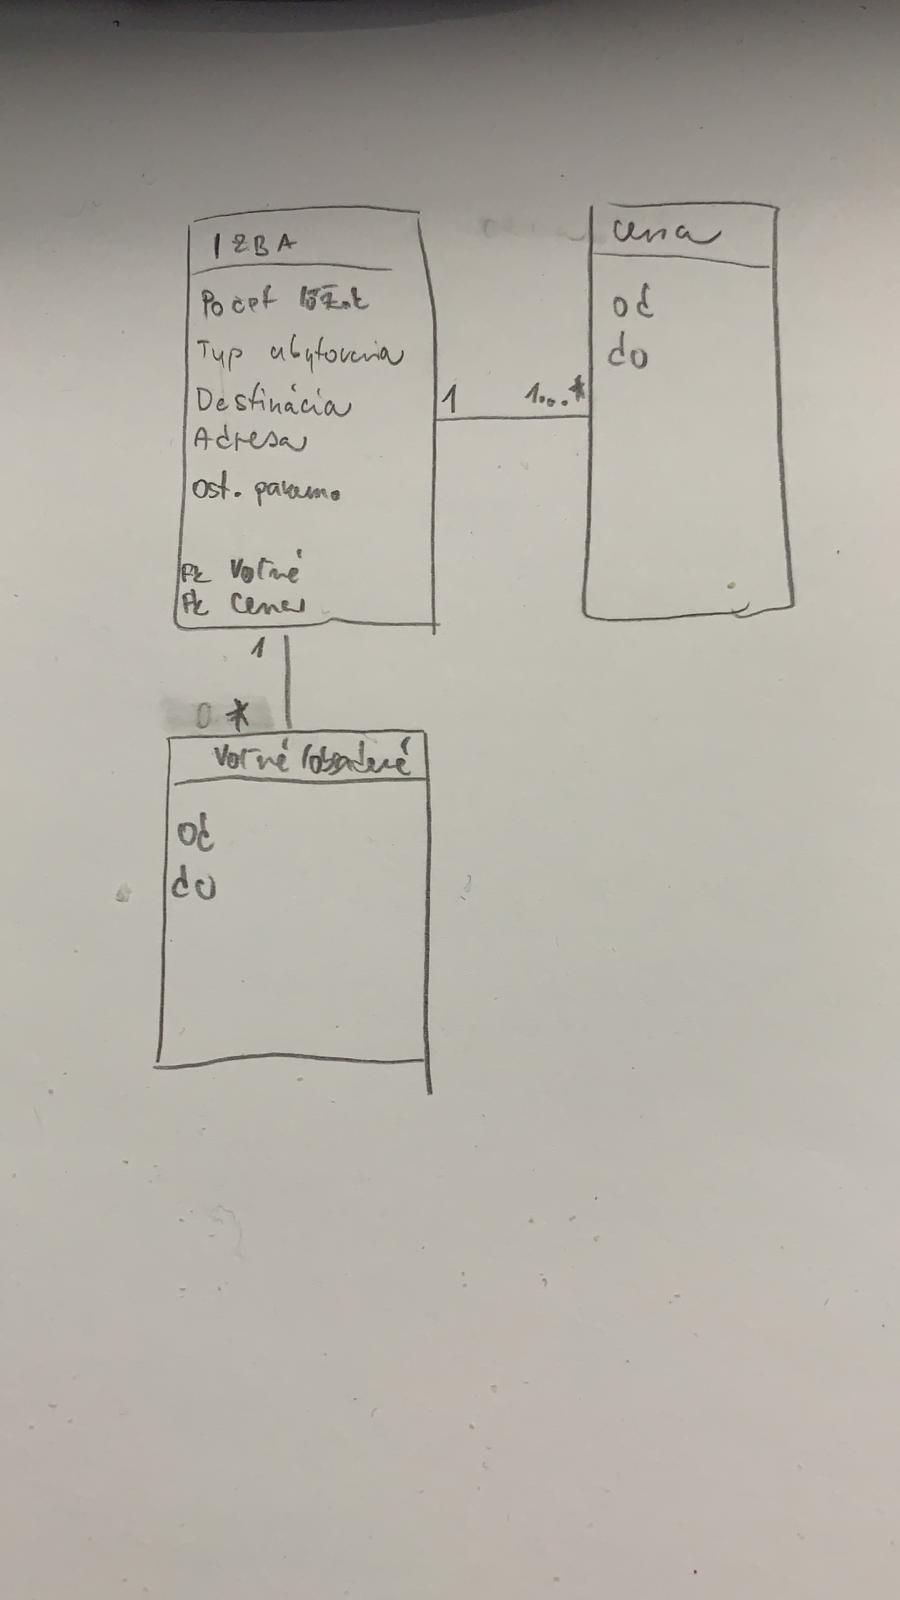 IZBA
Počet lôžok
Typ ubytovania
Destinácia
Adresa
Ost. param.
FK Voľné
FK Cena
1
1...*
cena
od
do
1
0 *
Voľné/obsadené
od
do